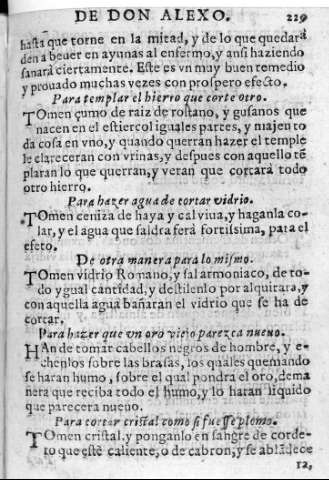 DE DON ALEXO. 229
hasta que torne en la mitad, y de lo que quedarà
den a beuer en ayunas al enfermo, y ansi haziendo
sanarà ciertamente. Este es vn muy buen remedio
y prouado muchas vezes con prospero efecto.
Para templar el hierro que corte otro.
TOmen çumo de raiz de rostano, y gusanos que
nacen en el estiercol iguales partes, y majen to
da cosa en vno, y quando querran hazer el temple
le clareceran con vrinas, y despues con aquello tē
plaran lo que querran, y veran que cortarà todo
otro hierro.
Para hazer agua de cortar vidrio.
TOmen ceniza de haya y cal viua, y haganla co-
lar, y el agua que saldra serà fortissima, para el
efeto.
De otra manera para lo mismo.
TOmen vidrio Romano, y sal armoniaco, de to-
do ygual cantidad, y destilenlo por alquitara, y
con aquella agua bañaran el vidrio que se ha de
cortar.
Para hazer que vn oro viejo parezca nueuo.
HAn de tomar cabellos negros de hombre, y e-
chenlos sobre las brasas, los quales quemando
se haran humo, sobre el qual pondra el oro, dema
nera que reciba todo el humo, y lo haran liquido
que parecera nueuo.
Para cortar cristal como si fuesse plomo.
TOmen cristal, y ponganlo en sangre de corde-
ro que estè caliente, o de cabron, y se ablādece
12,